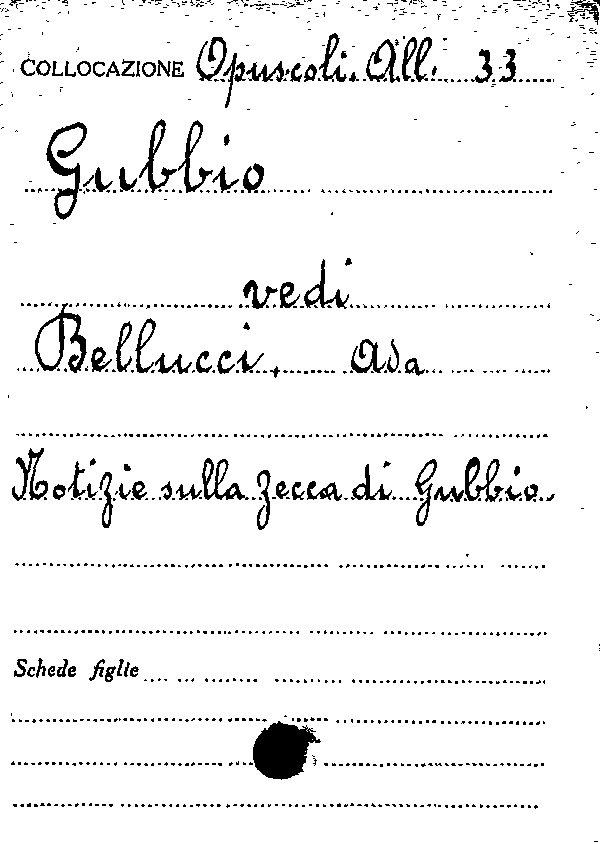 COLLOCAZIONE Opuscoli. All. 33
Gubbio
vedi
Bellucci, Ada
Notizie sulla zecca di Gubbio.
Schede figlie